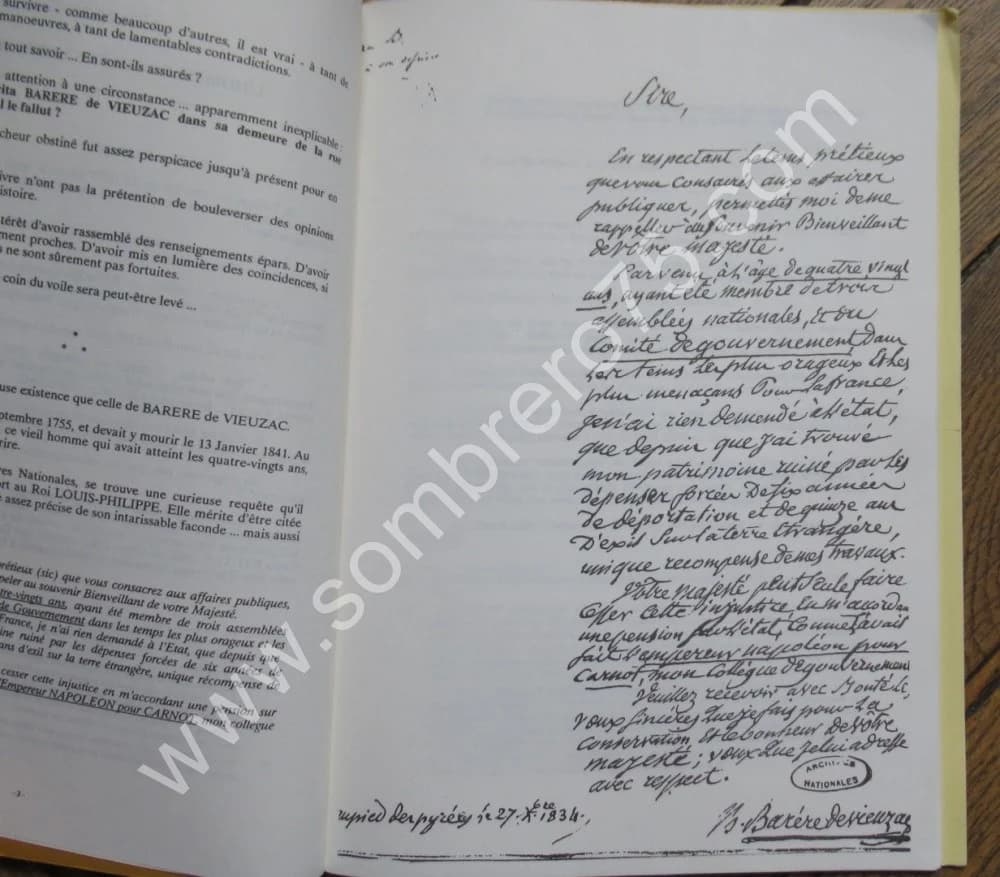 survivre - comme beaucoup d'autres, il est vrai - à tant de
manoeuvres, à tant de lamentables contradictions.
tout savoir ... En sont-ils assurés ?
attention à une circonstance ... apparemment inexplicable :
ita BARERE de VIEUZAC dans sa demeure de la rue
l le fallut ?
cheur obstiné fut assez perspicace jusqu'à présent pour en
ivre n'ont pas la prétention de bouleverser des opinions
istoire.
térêt d'avoir rassemblé des renseignements épars. D'avoir
ment proches. D'avoir mis en lumière des coïncidences, si
s ne sont sûrement pas fortuites.
coin du voile sera peut-être levé ...
use existence que celle de BARERE de VIEUZAC.
eptembre 1755, et devait y mourir le 13 Janvier 1841. Au
ce vieil homme qui avait atteint les quatre-vingts ans,
rire.
es Nationales, se trouve une curieuse requête qu'il
rt au Roi LOUIS-PHILIPPE. Elle mérite d'être citée
assez précise de son intarissable faconde ... mais aussi
rétieux (sic) que vous consacrez aux affaires publiques,
peler au souvenir Bienveillant de votre Majesté.
tre-vingts ans, ayant été membre de trois assemblées
de Gouvernement dans les temps les plus orageux et les
France, je n'ai rien demandé à l'Etat, que depuis que
ine ruiné par les dépenses forcées de six années de
ans d'exil sur la terre étrangère, unique récompense de
cesser cette injustice en m'accordant une pension sur
l'Empereur NAPOLEON pour CARNOT, mon collègue
-3-
Sire,
En respectant le tems prétieux
que vous consacrés aux affaires
publiques, permettés moi de me
rappeller au souvenir Bienveillant
de votre majesté.
Parvenu à l'âge de quatre vingt
ans, ayant été membre de trois
assemblées nationales, et du
Comité de gouvernement dans
les tems les plus orageux et les
plus menaçans pour la france,
je n'ai rien demandé à l'état,
que depuis que j'ai trouvé
mon patrimoine ruiné par les
dépenses forcées de six années
de déportation et de quinze ans
d'exil sur la terre étrangère,
unique recompense de mes travaux.
Votre majesté peut seule faire
cesser cette injustice en m'accordan
une pension sur l'état, comme l'avait
fait l'empereur napoléon pour
Carnot, mon collègue de gouvernement
Veuillez recevoir avec Bonté le
voeux sincères que je fais pour la
conservation et le bonheur de vôtre
majesté ; voeux que je lui adresse
avec respect.
ARCHIVES
NATIONALES
27. Xbre 1834.
B. Barère de vieuzac
www.sombrero75.com